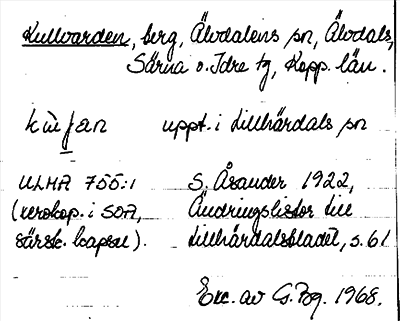 Kullvarden, berg, Älvdalens sn, Älvdals,
Särna o. Idre tg, Kopp. län.
uppt. i Lillhärdals sn
ULMA 755:1 S. Åsander 1922,
(xerokop. i SOA, Ändringslistor till
särsk. kapsel). Lillhärdalsbladet, s. 61
Exc. av G. Bg. 1968.